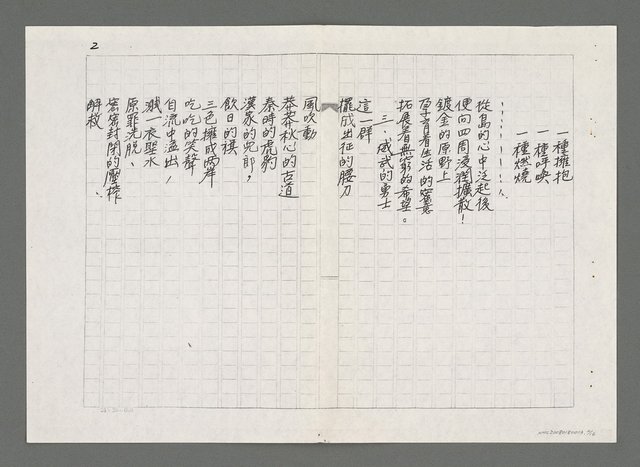 一種擁抱
一種呼喚
一種燃燒
從島的心中泛起後
便向四周浸潤擴散！
鍍金的原野上
孕育着生活的蜜意
拓展着無窮的希望。
三、威武的勇士
這一群
擺成出征的腰刀
風吹動
莽莽秋心的古道
秦時的虎豹
漢家的兒郎，
飲日的祺
三色擁成兩岸
吃吃的笑聲
自流中溢出，
濺一衣聖水
原罪洗脫、
密密封閉的壓榨
解救、
2